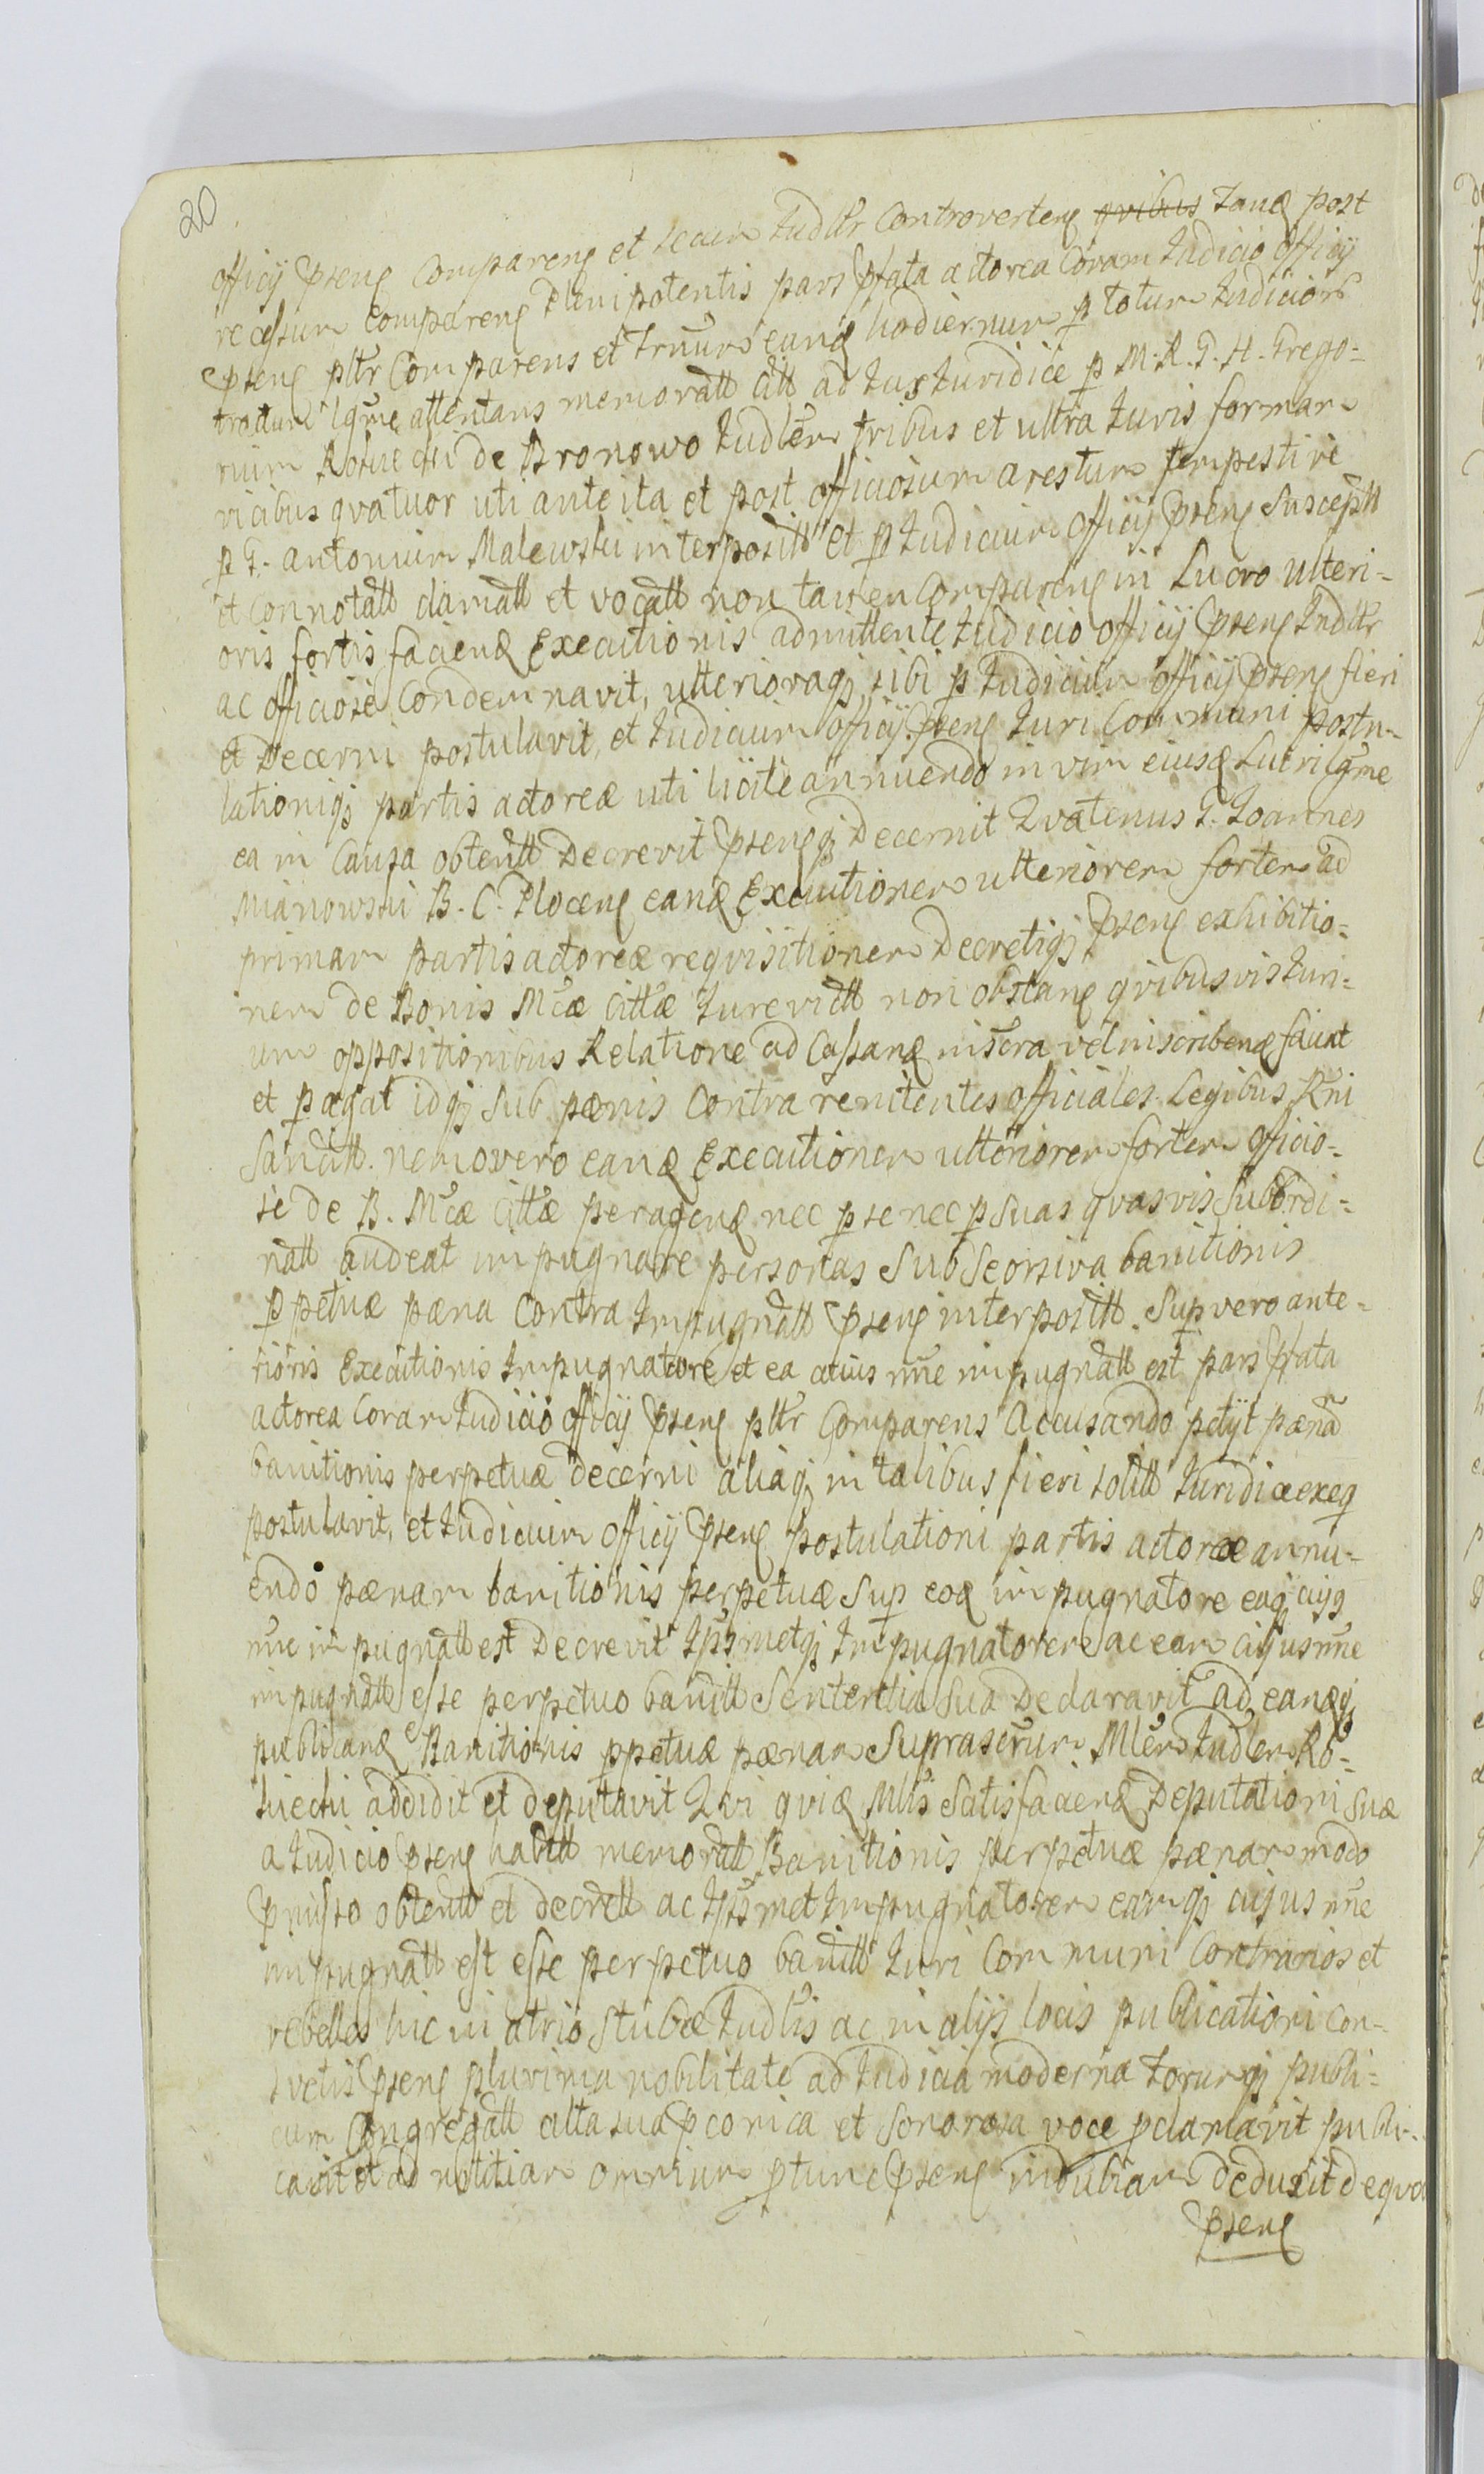 20
officij pnteng Compareng et secum Judltr Controverteng qvibus Tanq post
recessum Compareng Plenipotentis pars pfata actorea Coram Judicio officij
pnteng pltr Comparens et Trnum eanq hodiernum p totum Judiciorb
tractum lgme attentans memoratt Citt ad Jus Juridice p M. R. G. H. Grego=
rium Rościecki de Bronowo Judlem tribus et ultra Juris formam
vicibus qvatuor uti ante ita et post officiosum arestum tempestive
p G. antonium Malewski interpositt et p Judicium officij pnteng Susceptt
et Connotatt clamatt et vocatt non tamen Compareng in Lucro ulteri=
oris fortis faciendq Executionis admittente Judicio officij pnteng Judltr
ac officiose Condemnavit, ulterioraqz sibi p Judicium officij pnteng fieri
et Decerni postulavit, et Judicium officij pnteng Juri Communi postu=
lationiqz partis actoreæ uti licite annuendo in vim eiusq Lucri lgme
ea in Causa obtentt Decrevit pntengqz Decernit Qvatenus G. Joannes
Mianowski B. C. Ploceng eanq Executionem ulteriorem fortem ad
primam partis actoreæ reqvisitionem Decretiqz pnteng exhibitio=
nem de Bonis Mcæ Cittæ Jurevictt non obstang qvibusvis Juri=
um oppositionibus Relatione ad Cassanq inscra vel inscribenq faciat
et pagat idqz Sub pænis Contra renitentes officiales Legibus Rni
Sancitt. nemo vero eanq Executionem ulteriorem fortem officio=
se de B. Mcæ Cittæ peragenq nec p se nec p Suas qvasvis Subordi=
natt audeat impugnare personas Sub Seorsiva banitionis
ppetuæ pæna Contra Impugnatt pnteng interpositt. Sup vero ante=
rioris Executionis Impugnatore et ea cuius nne impugnatt est pars pfata
actorea Coram Judicio officij pnteng pltr Comparens Accusando petijt pænā
banitionis perpetuæ decerni aliaqz in talibus fieri solitt Juridice exeq
postulavit, et Judicium officij pnteng postulationi partis actoreæ annu=
endo pænam banitionis perpetuæ Sup eoq impugnatore eaqz cujq
nne impugnatt est Decrevit Ipsmetqz Impugnatorem ac eam cujus nne
impugnatt esse perpetuo banitt Sententia Sua Declaravit ad eanqqz
publicanq Banitionis ppetuæ pænam Suprascrum Mlem Judlem Ro=
ściecki addidit et deputavit Qvi qviq Mlis Satisfacienq Deputationi Suæ
a Judicio pnteng habitt memoratt Banitionis perpetuæ pænam modo
pmisso obtentt et decrett ac Ipsmet Impugnatorem eamqz cujus nne
impugnatt est esse perpetuo banitt Juri Communi Contrarios et
rebelles hic in atrio Stubæ Judlis ac in alijs locis publicationi con=
svetis pnteng plurima nobilitate ad Judicia moderna Forumqz publi=
cum Congregatt alta sua pconica et Sonorosa voce pclamavit publi=
cavit et ad notitiam omnium ptunc pnteng indubiam deduxit de quo
pnteng